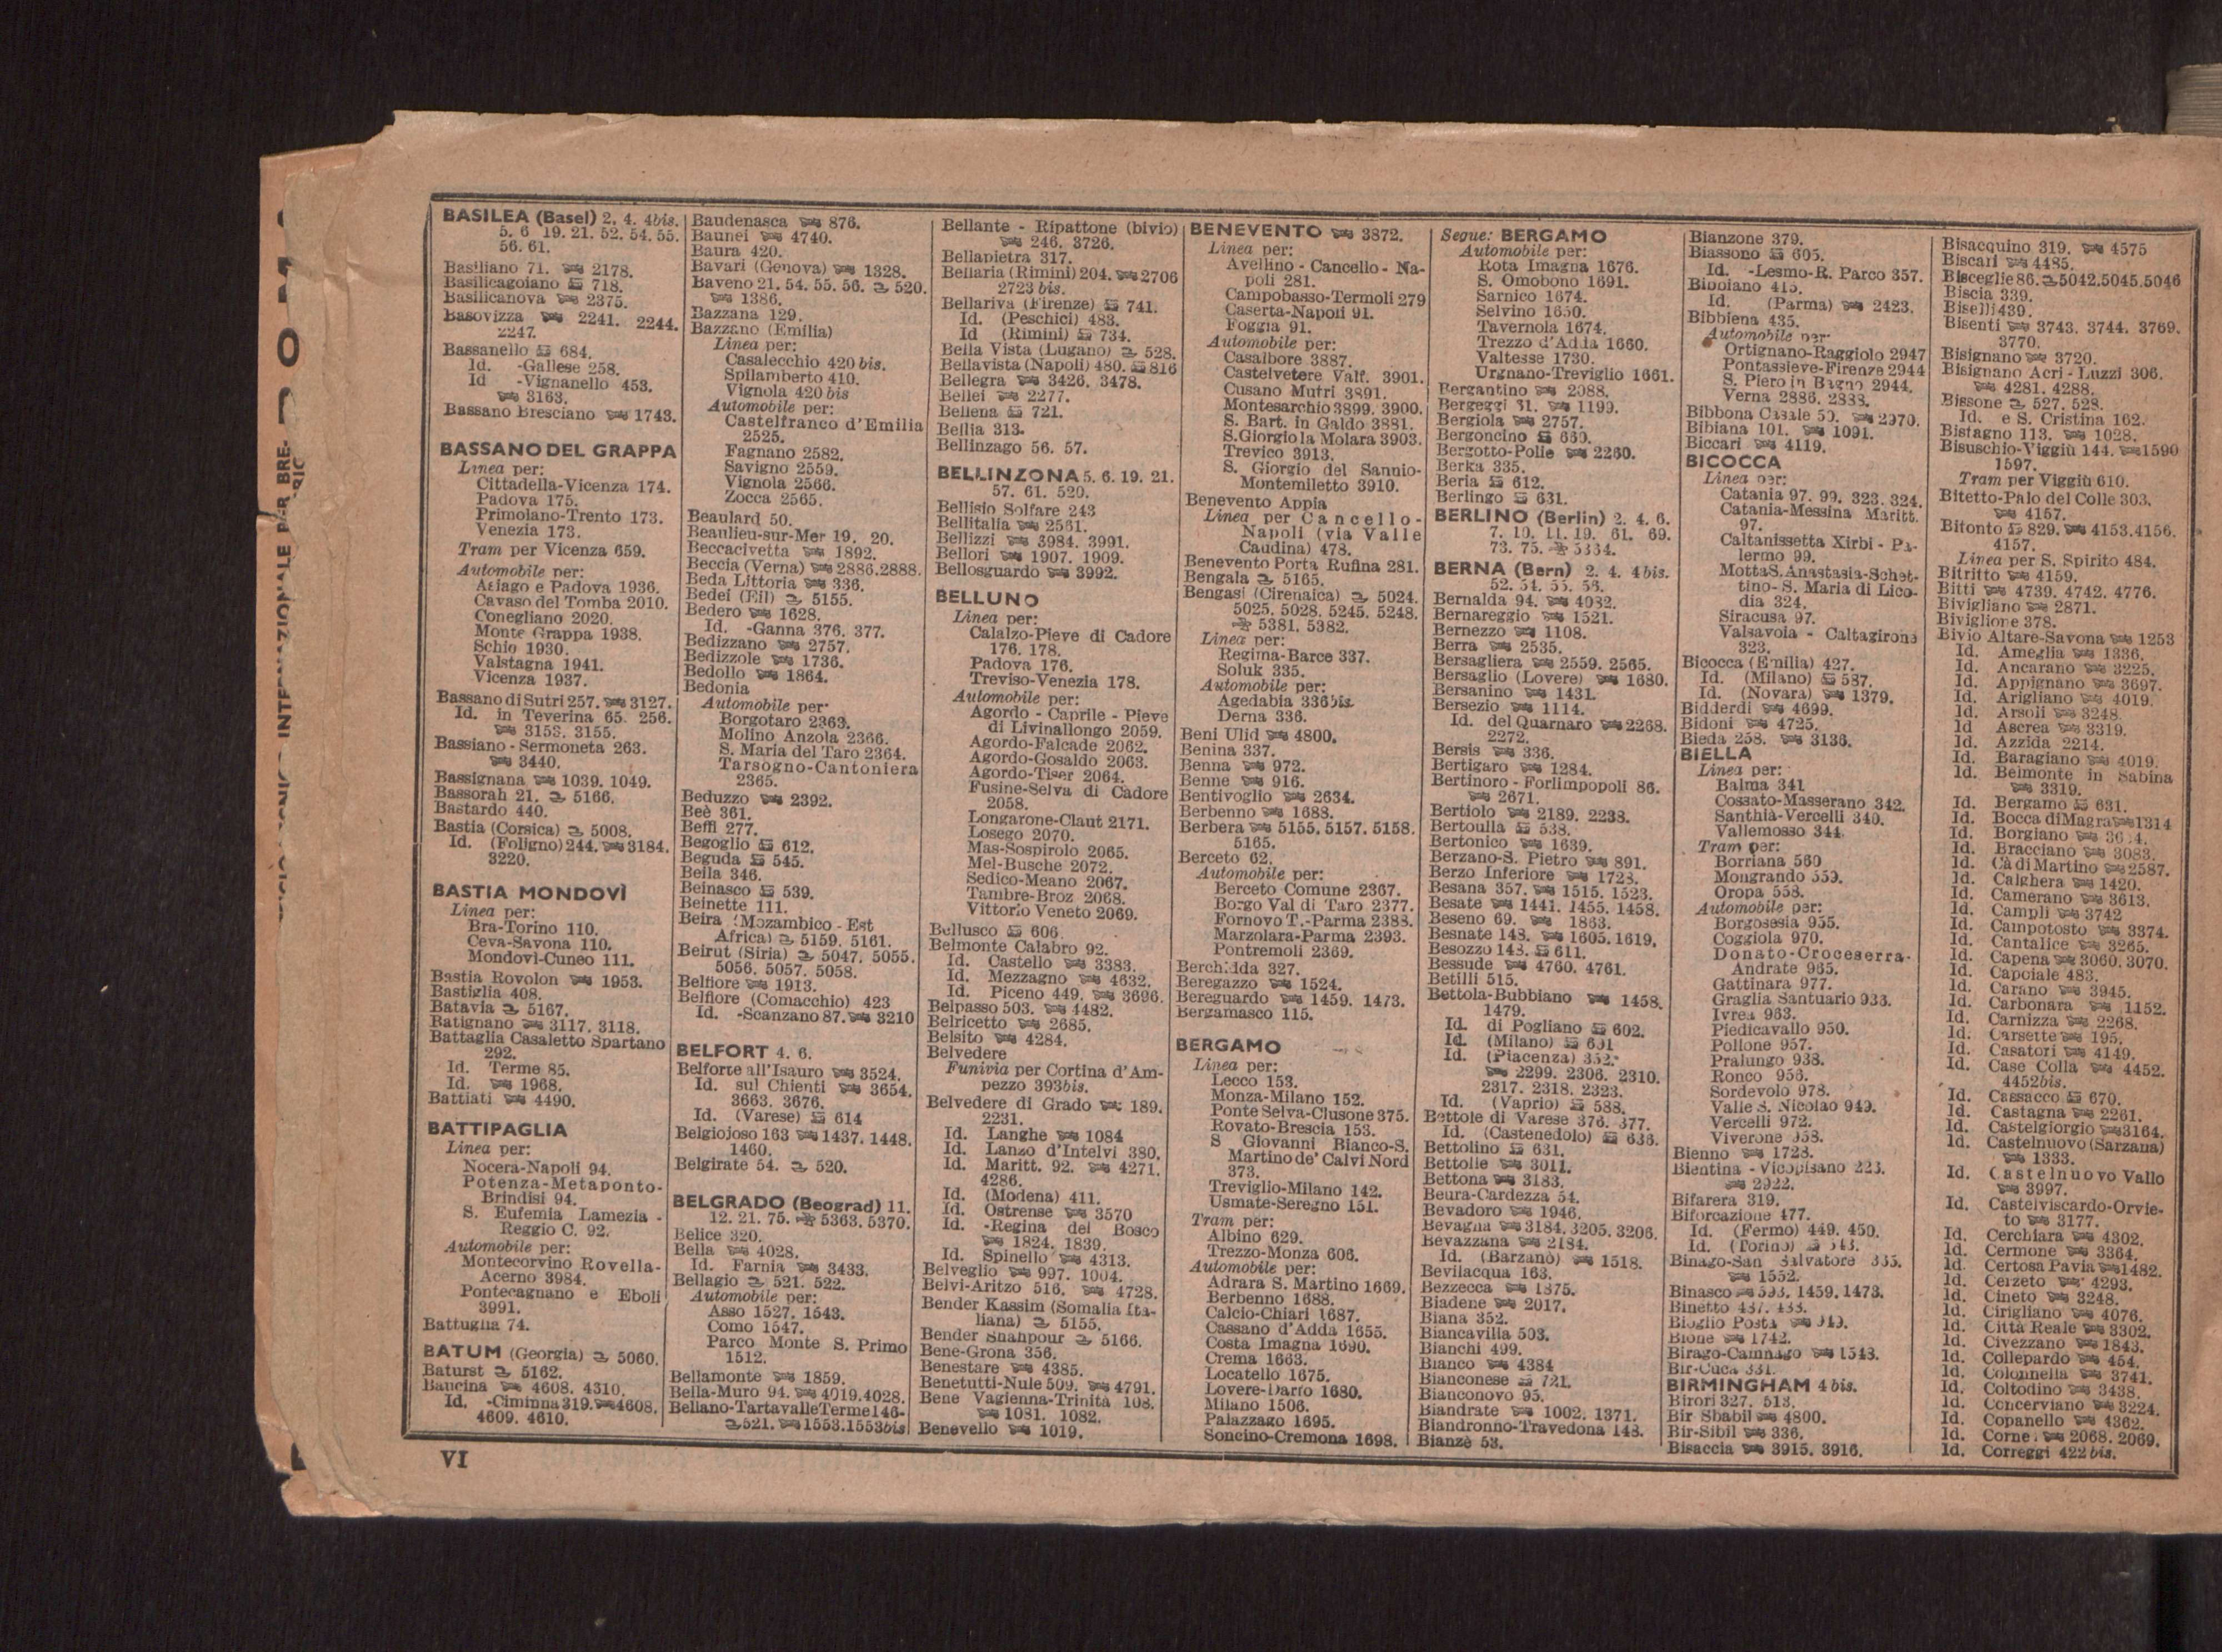 BASILEA (Basel) 2. 4. 4bis.
5. 6 19. 21. 52. 54. 55.
56. 61.
Basiliano 71. 2178.
Basilicagoiano 718.
Basilicanova 2375.
Basovizza 2241. 2244.
2247.
Bassanello 684.
Id. -Gallese 258.
Id -Vignanello 453.
3163.
Bassano Bresciano 1743.
BASSANO DEL GRAPPA
Linea per:
Cittadella-Vicenza 174.
Padova 175.
Primolano-Trento 173.
Venezia 173.
Tram per Vicenza 659.
Automobile per:
Asiago e Padova 1936.
Cavaso del Tomba 2010.
Conegliano 2020.
Monte Grappa 1938.
Schio 1930.
Valstagna 1941.
Vicenza 1937.
Bassano di Sutri 257. 3127.
Id. in Teverina 65. 256.
3153. 3155.
Bassiano - Sermoneta 263.
3440.
Bassignana 1039. 1049.
Bassorah 21. 5166.
Bastardo 440.
Bastia (Corsica) 5008.
Id. (Foligno) 244. 3184.
3220.
BASTIA MONDOVÌ
Linea per:
Bra-Torino 110.
Ceva-Savona 110.
Mondovì-Cuneo 111.
Bastia Rovolon 1953.
Bastiglia 408.
Batavia 5167.
Batignano 3117. 3118.
Battaglia Casaletto Spartano
292.
Id. Terme 85.
Id. 1968.
Battiati 4490.
BATTIPAGLIA
Linea per:
Nocera-Napoli 94.
Potenza-Metaponto-
Brindisi 94.
S. Eufemia Lamezia -
Reggio C. 92.
Automobile per:
Montecorvino Rovella-
Acerno 3984.
Pontecagnano e Eboli
3991.
Battuglia 74.
BATUM (Georgia) 5060.
Baturst 5162.
Baucina 4608. 4310.
Id. -Ciminna 319. 4608.
4609. 4610.
VI
Baudenasca 876.
Baunei 4740.
Baura 420.
Bavari (Genova) 1328.
Baveno 21. 54. 55. 56. 520.
1386.
Bazzana 129.
Bazzano (Emilia)
Linea per:
Casalecchio 420 bis.
Spilamberto 410.
Vignola 420 bis
Automobile per:
Castelfranco d'Emilia
2525.
Fagnano 2582.
Savigno 2559.
Vignola 2566.
Zocca 2565.
Beaulard 50.
Beaulieu-sur-Mer 19. 20.
Beccacivetta 1892.
Beccia (Verna) 2886.2888.
Beda Littoria 336.
Bedei (Eil) 5155.
Bedero 1628.
Id. -Ganna 376. 377.
Bedizzano 2757.
Bedizzole 1736.
Bedollo 1864.
Bedonia
Automobile per
Borgotaro 2363.
Molino Anzola 2366.
S. Maria del Taro 2364.
Tarsogno-Cantoniera
2365.
Beduzzo 2392.
Beè 361.
Beffi 277.
Begoglio 612.
Beguda 545.
Beila 346.
Beinasco 539.
Beinette 111.
Beira (Mozambico - Est
Africa) 5159. 5161.
Beirut (Siria) 5047. 5055.
5056. 5057. 5058.
Belfiore 1913.
Belfiore (Comacchio) 423
Id. -Scanzano 87. 3210
BELFORT 4. 6.
Belforte all'Isauro 3524.
Id. sul Chienti 3654.
3663. 3676.
Id. (Varese) 614
Belgiojoso 163 1437. 1448.
1460.
Belgirate 54. 520.
BELGRADO (Beograd) 11.
12. 21. 75. 5363. 5370.
Belice 320.
Bella 4028.
Id. Farnia 3433.
Bellagio 521. 522.
Automobile per:
Asso 1527. 1543.
Como 1547.
Parco Monte S. Primo
1512.
Bellamonte 1859.
Bella-Muro 94. 4019.4028.
Bellano-TartavalleTerme146-
521. 1553.1553bis
Bellante - Ripattone (bivio)
246. 3726.
Bellapietra 317.
Bellaria (Rimini) 204. 2706
2723 bis.
Bellariva (Firenze) 741.
Id. (Peschici) 483.
Id (Rimini) 734.
Bella Vista (Lugano) 528.
Bellavista (Napoli) 480. 816
Bellegra 3426. 3478.
Bellei 2277.
Bellena 721.
Bellia 313.
Bellinzago 56. 57.
BELLINZONA 5. 6. 19. 21.
57. 61. 520.
Bellisio Solfare 243
Bellitalia 2561.
Bellizzi 3984. 3991.
Bellori 1907. 1909.
Bellosguardo 3992.
BELLUNO
Linea per:
Calalzo-Pieve di Cadore
176. 178.
Padova 176.
Treviso-Venezia 178.
Automobile per:
Agordo - Caprile - Pieve
di Livinallongo 2059.
Agordo-Falcade 2062.
Agordo-Gosaldo 2063.
Agordo-Tiser 2064.
Fusine-Selva di Cadore
2058.
Longarone-Claut 2171.
Losego 2070.
Mas-Sospirolo 2065.
Mel-Busche 2072.
Sedico-Meano 2067.
Tambre-Broz 2068.
Vittorio Veneto 2069.
Bellusco 606.
Belmonte Calabro 92.
Id. Castello 3383.
Id. Mezzagno 4632.
Id. Piceno 449. 3696.
Belpasso 503. 4482.
Belricetto 2685.
Belsito 4284.
Belvedere
Funivia per Cortina d'Am-
pezzo 393bis.
Belvedere di Grado 189.
2231.
Id. Langhe 1084
Id. Lanzo d'Intelvi 380.
Id. Maritt. 92. 4271.
4286.
Id. (Modena) 411.
Id. Ostrense 3570
Id. -Regina del Bosco
1824. 1839.
Id. Spinello 4313.
Belveglio 997. 1004.
Belvi-Aritzo 516. 4728.
Bender Kassim (Somalia Ita-
liana) 5155.
Bender Shahpour 5166.
Bene-Grona 356.
Benestare 4385.
Benetutti-Nule 509. 4791.
Bene Vagienna-Trinità 108.
1081. 1082.
Benevello 1019.
BENEVENTO 3872.
Linea per:
Avellino - Cancello - Na-
poli 281.
Campobasso-Termoli 279
Caserta-Napoli 91.
Foggia 91.
Automobile per:
Casalbore 3887.
Castelvetere Valf. 3901.
Cusano Mutri 3891.
Montesarchio 3899. 3900.
S. Bart. in Galdo 3881.
S.Giorgio la Molara 3903.
Trevico 3913.
S. Giorgio del Sannio-
Montemiletto 3910.
Benevento Appia
Linea per Cancello-
Napoli (via Valle
Caudina) 478.
Benevento Porta Rufina 281.
Bengala 5165.
Bengasi (Cirenaica) 5024.
5025. 5028. 5245. 5248.
5381. 5382.
Linea per:
Regima-Barce 337.
Soluk 335.
Automobile per:
Agedabia 336bis.
Derna 336.
Beni Ulid 4800.
Benina 337.
Benna 972.
Benne 916.
Bentivoglio 2634.
Berbenno 1688.
Berbera 5155. 5157. 5158.
5165.
Berceto 62.
Automobile per:
Berceto Comune 2367.
Borgo Val di Taro 2377.
Fornovo T.-Parma 2388.
Marzolara-Parma 2393.
Pontremoli 2369.
Berchidda 327.
Beregazzo 1524.
Bereguardo 1459. 1473.
Bergamasco 115.
BERGAMO
Linea per:
Lecco 153.
Monza-Milano 152.
Ponte Selva-Clusone 375.
Rovato-Brescia 153.
S Giovanni Bianco-S.
Martino de' Calvi Nord
373.
Treviglio-Milano 142.
Usmate-Seregno 151.
Tram per:
Albino 629.
Trezzo-Monza 606.
Automobile per:
Adrara S. Martino 1669.
Berbenno 1688.
Calcio-Chiari 1687.
Cassano d'Adda 1655.
Costa Imagna 1690.
Crema 1663.
Locatello 1675.
Lovere-Darfo 1680.
Milano 1506.
Palazzago 1695.
Soncino-Cremona 1698.
Segue: BERGAMO
Automobile per:
Rota Imagna 1676.
S. Omobono 1691.
Sarnico 1674.
Selvino 1650.
Tavernola 1674.
Trezzo d'Adda 1660.
Valtesse 1730.
Urgnano-Treviglio 1661.
Bergantino 2088.
Bergeggi 31. 1199.
Bergiola 2757.
Bergoncino 660.
Bergotto-Polle 2260.
Berka 335.
Beria 612.
Berlingo 631.
BERLINO (Berlin) 2. 4. 6.
7. 10. 11. 19. 61. 69.
73. 75. 5364.
BERNA (Bern) 2. 4. 4bis.
52. 54. 55. 58.
Bernalda 94. 4032.
Bernareggio 1521.
Bernezzo 1108.
Berra 2535.
Bersagliera 2559. 2565.
Bersaglio (Lovere) 1680.
Bersanino 1431.
Bersezio 1114.
Id. del Quarnaro 2268.
2272.
Bersis 336.
Bertigaro 1284.
Bertinoro - Forlimpopoli 86.
2671.
Bertiolo 2189. 2238.
Bertoulla 538.
Bertonico 1639.
Berzano-S. Pietro 891.
Berzo Inferiore 1723.
Besana 357. 1515. 1523.
Besate 1441. 1455. 1458.
Beseno 69. 1863.
Besnate 143. 1605. 1619.
Besozzo 143. 611.
Bessude 4760. 4761.
Betilli 515.
Bettola-Bubbiano 1458.
1479.
Id. di Pogliano 602.
Id. (Milano) 601
Id. (Piacenza) 352.
2299. 2306. 2310.
2317. 2318. 2323.
Id. (Vaprio) 588.
Bettole di Varese 376. 377.
Id. (Castenedolo) 636.
Bettolino 631.
Bettolle 3011.
Bettona 3183.
Beura-Cardezza 54.
Bevadoro 1946.
Bevagna 3184. 3205. 3206.
Bevazzana 2184.
Id. (Barzanò) 1518.
Bevilacqua 163.
Bezzecca 1875.
Biadene 2017.
Biana 352.
Biancavilla 503.
Bianchi 499.
Bianco 4384
Bianconese 721.
Bianconovo 95.
Biandrate 1002. 1371.
Biandronno-Travedona 143.
Bianzè 53.
Bianzone 379.
Biassono 605.
Id. -Lesmo-R. Parco 357.
Bibbiano 415.
Id. (Parma) 2423.
Bibbiena 435.
Automobile per:
Ortignano-Raggiolo 2947
Pontassieve-Firenze 2944
S. Piero in Bagno 2944.
Verna 2886. 2888.
Bibbona Casale 50. 2970.
Bibiana 101. 1091.
Biccari 4119.
BICOCCA
Linea per:
Catania 97. 99. 323. 324.
Catania-Messina Maritt.
97.
Caltanissetta Xirbi - Pa-
lermo 99.
Motta S. Anastasia-Schet-
tino- S. Maria di Lico-
dia 324.
Siracusa 97.
Valsavoia - Caltagirone
323.
Bicocca (Emilia) 427.
Id. (Milano) 587.
Id. (Novara) 1379.
Bidderdi 4699.
Bidoni 4725.
Bieda 258. 3136.
BIELLA
Linea per:
Balma 341
Cossato-Masserano 342.
Santhià-Vercelli 340.
Vallemosso 344.
Tram per:
Borriana 560
Mongrando 559.
Oropa 558.
Automobile per:
Borgosesia 955.
Coggiola 970.
Donato-Croceserra-
Andrate 965.
Gattinara 977.
Graglia Santuario 933.
Ivrea 963.
Piedicavallo 950.
Pollone 957.
Pralungo 938.
Ronco 956.
Sordevolo 978.
Valle S. Nicolao 949.
Vercelli 972.
Viverone 958.
Bienno 1723.
Bientina - Vicopisano 223.
2922.
Bifarera 319.
Biforcazione 477.
Id. (Fermo) 449. 450.
Id. (Torino) 543.
Binago-San Salvatore 355.
1552.
Binasco 593. 1459. 1473.
Binetto 437. 433.
Bioglio Posta 949.
Bione 1742.
Birago-Camnago 1543.
Bir-Cuca 331.
BIRMINGHAM 4bis.
Birori 327. 513.
Bir Sbabil 4800.
Bir-Sibil 336.
Bisaccia 3915. 3916.
Bisacquino 319. 4575
Biscari 4485.
Bisceglie 86. 5042.5045.5046
Biscia 339.
Biselli 439.
Bisenti 3743. 3744. 3769.
3770.
Bisignano 3720.
Bisignano Acri - Luzzi 306.
4281. 4288.
Bissone 527. 528.
Id. e S. Cristina 162.
Bistagno 113. 1028.
Bisuschio-Viggiù 144. 1590
1597.
Tram per Viggiù 610.
Bitetto-Palo del Colle 303.
4157.
Bitonto 829. 4153.4156.
4157.
Linea per S. Spirito 484.
Bitritto 4159.
Bitti 4739. 4742. 4776.
Bivigliano 2871.
Biviglione 378.
Bivio Altare-Savona 1253
Id. Ameglia 1336.
Id. Ancarano 3225.
Id. Appignano 3697.
Id. Arigliano 4019.
Id. Arsoli 3248.
Id Ascrea 3319.
Id. Azzida 2214.
Id. Baragiano 4019.
Id. Belmonte in Sabina
3319.
Id. Bergamo 631.
Id. Bocca di Magra 1314
Id. Borgiano
Id. Bracciano 3083.
Id. Cà di Martino 2587.
Id. Calghera 1420.
Id. Camerano 3613.
Id. Campli 3742
Id. Campotosto 3374.
Id. Cantalice 3265.
Id. Capena 3060. 3070.
Id. Capoiale 483.
Id. Carano 3945.
Id. Carbonara 1152.
Id. Carnizza 2268.
Id. Carsette 195.
Id. Casatori 4149.
Id. Case Colla 4452.
4452bis.
Id. Cassacco 670.
Id. Castagna 2261.
Id. Castelgiorgio 3164.
Id. Castelnuovo (Sarzana)
1333.
Id. Castelnuovo Vallo
3997.
Id. Castelviscardo-Orvie-
to 3177.
Id. Cerchiara 4302.
Id. Cermone 3364.
Id. Certosa Pavia 1482.
Id. Cerzeto 4293.
Id. Cineto 3248.
Id. Cirigliano 4076.
Id. Città Reale 3302.
Id. Civezzano 1843.
Id. Collepardo 454.
Id. Colonnella 3741.
Id. Coltodino 3438.
Id. Concerviano 3224.
Id. Copanello 4362.
Id. Corne 2068. 2069.
Id. Correggi 422 bis.